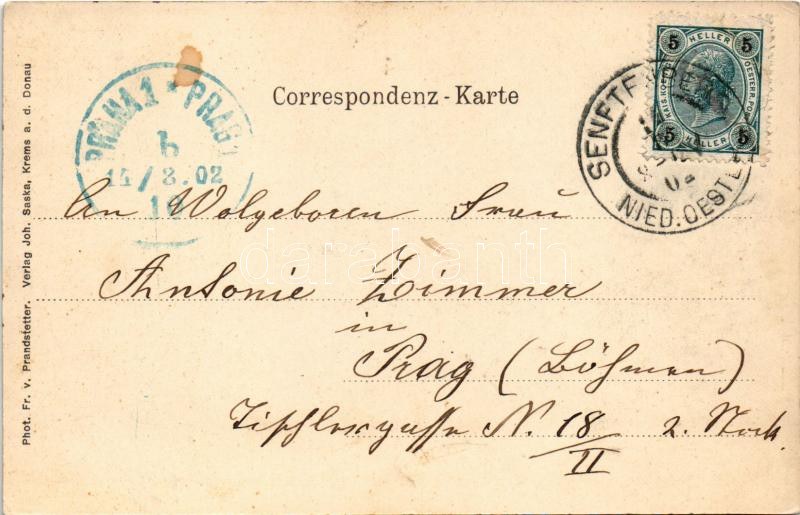 Correspondenz - Karte
5 HELLER 5
KAIS. KOENIGL. OESTERR. POST
5 HELLER 5
SENFTENBERG
NIED. OESTE
PRAHA 1 * PRAG 1
b
14/8.02
An Wolgeboren Frau
Antonie Zimmer
in
Prag (Böhmen)
Tischlergasse N. 18/II 2. Stock
Phot. Fr. v. Prandstetter. Verlag Joh. Saska, Krems a. d. Donau
darabanth